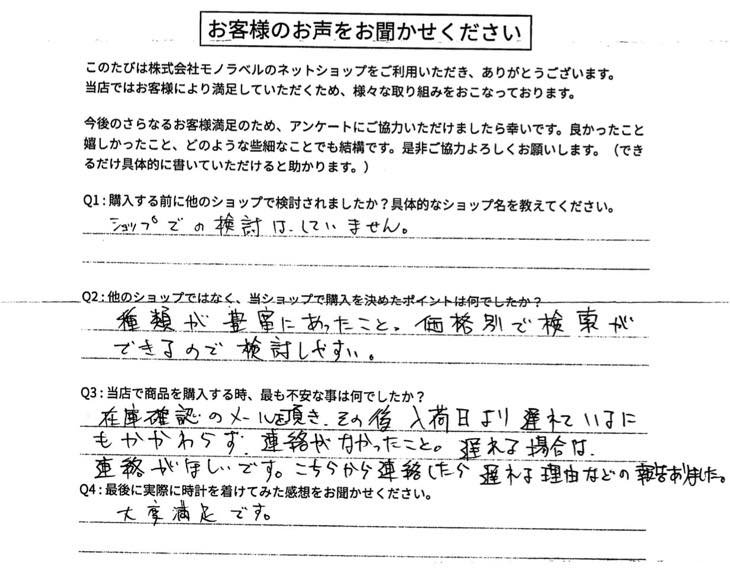 お客様のお声をお聞かせください
このたびは株式会社モノラベルのネットショップをご利用いただき、ありがとうございます。
当店ではお客様により満足していただくため、様々な取り組みをおこなっております。
今後のさらなるお客様満足のため、アンケートにご協力いただけましたら幸いです。良かったこと
嬉しかったこと、どのような些細なことでも結構です。是非ご協力よろしくお願いします。（でき
るだけ具体的に書いていただけると助かります。）
Q1：購入する前に他のショップで検討されましたか？具体的なショップ名を教えてください。
ショップでの検討は、していません。
Q2：他のショップではなく、当ショップで購入を決めたポイントは何でしたか？
種類が豊富にあったこと。価格別で検索が
できるので検討しやすい。
Q3：当店で商品を購入する時、最も不安な事は何でしたか？
在庫確認のメールを頂き、その後入荷日より遅れているに
もかかわらず、連絡がなかったこと。遅れる場合は、
連絡がほしいです。こちらから連絡したら遅れる理由などの報告ありました。
Q4：最後に実際に時計を着けてみた感想をお聞かせください。
大変満足です。